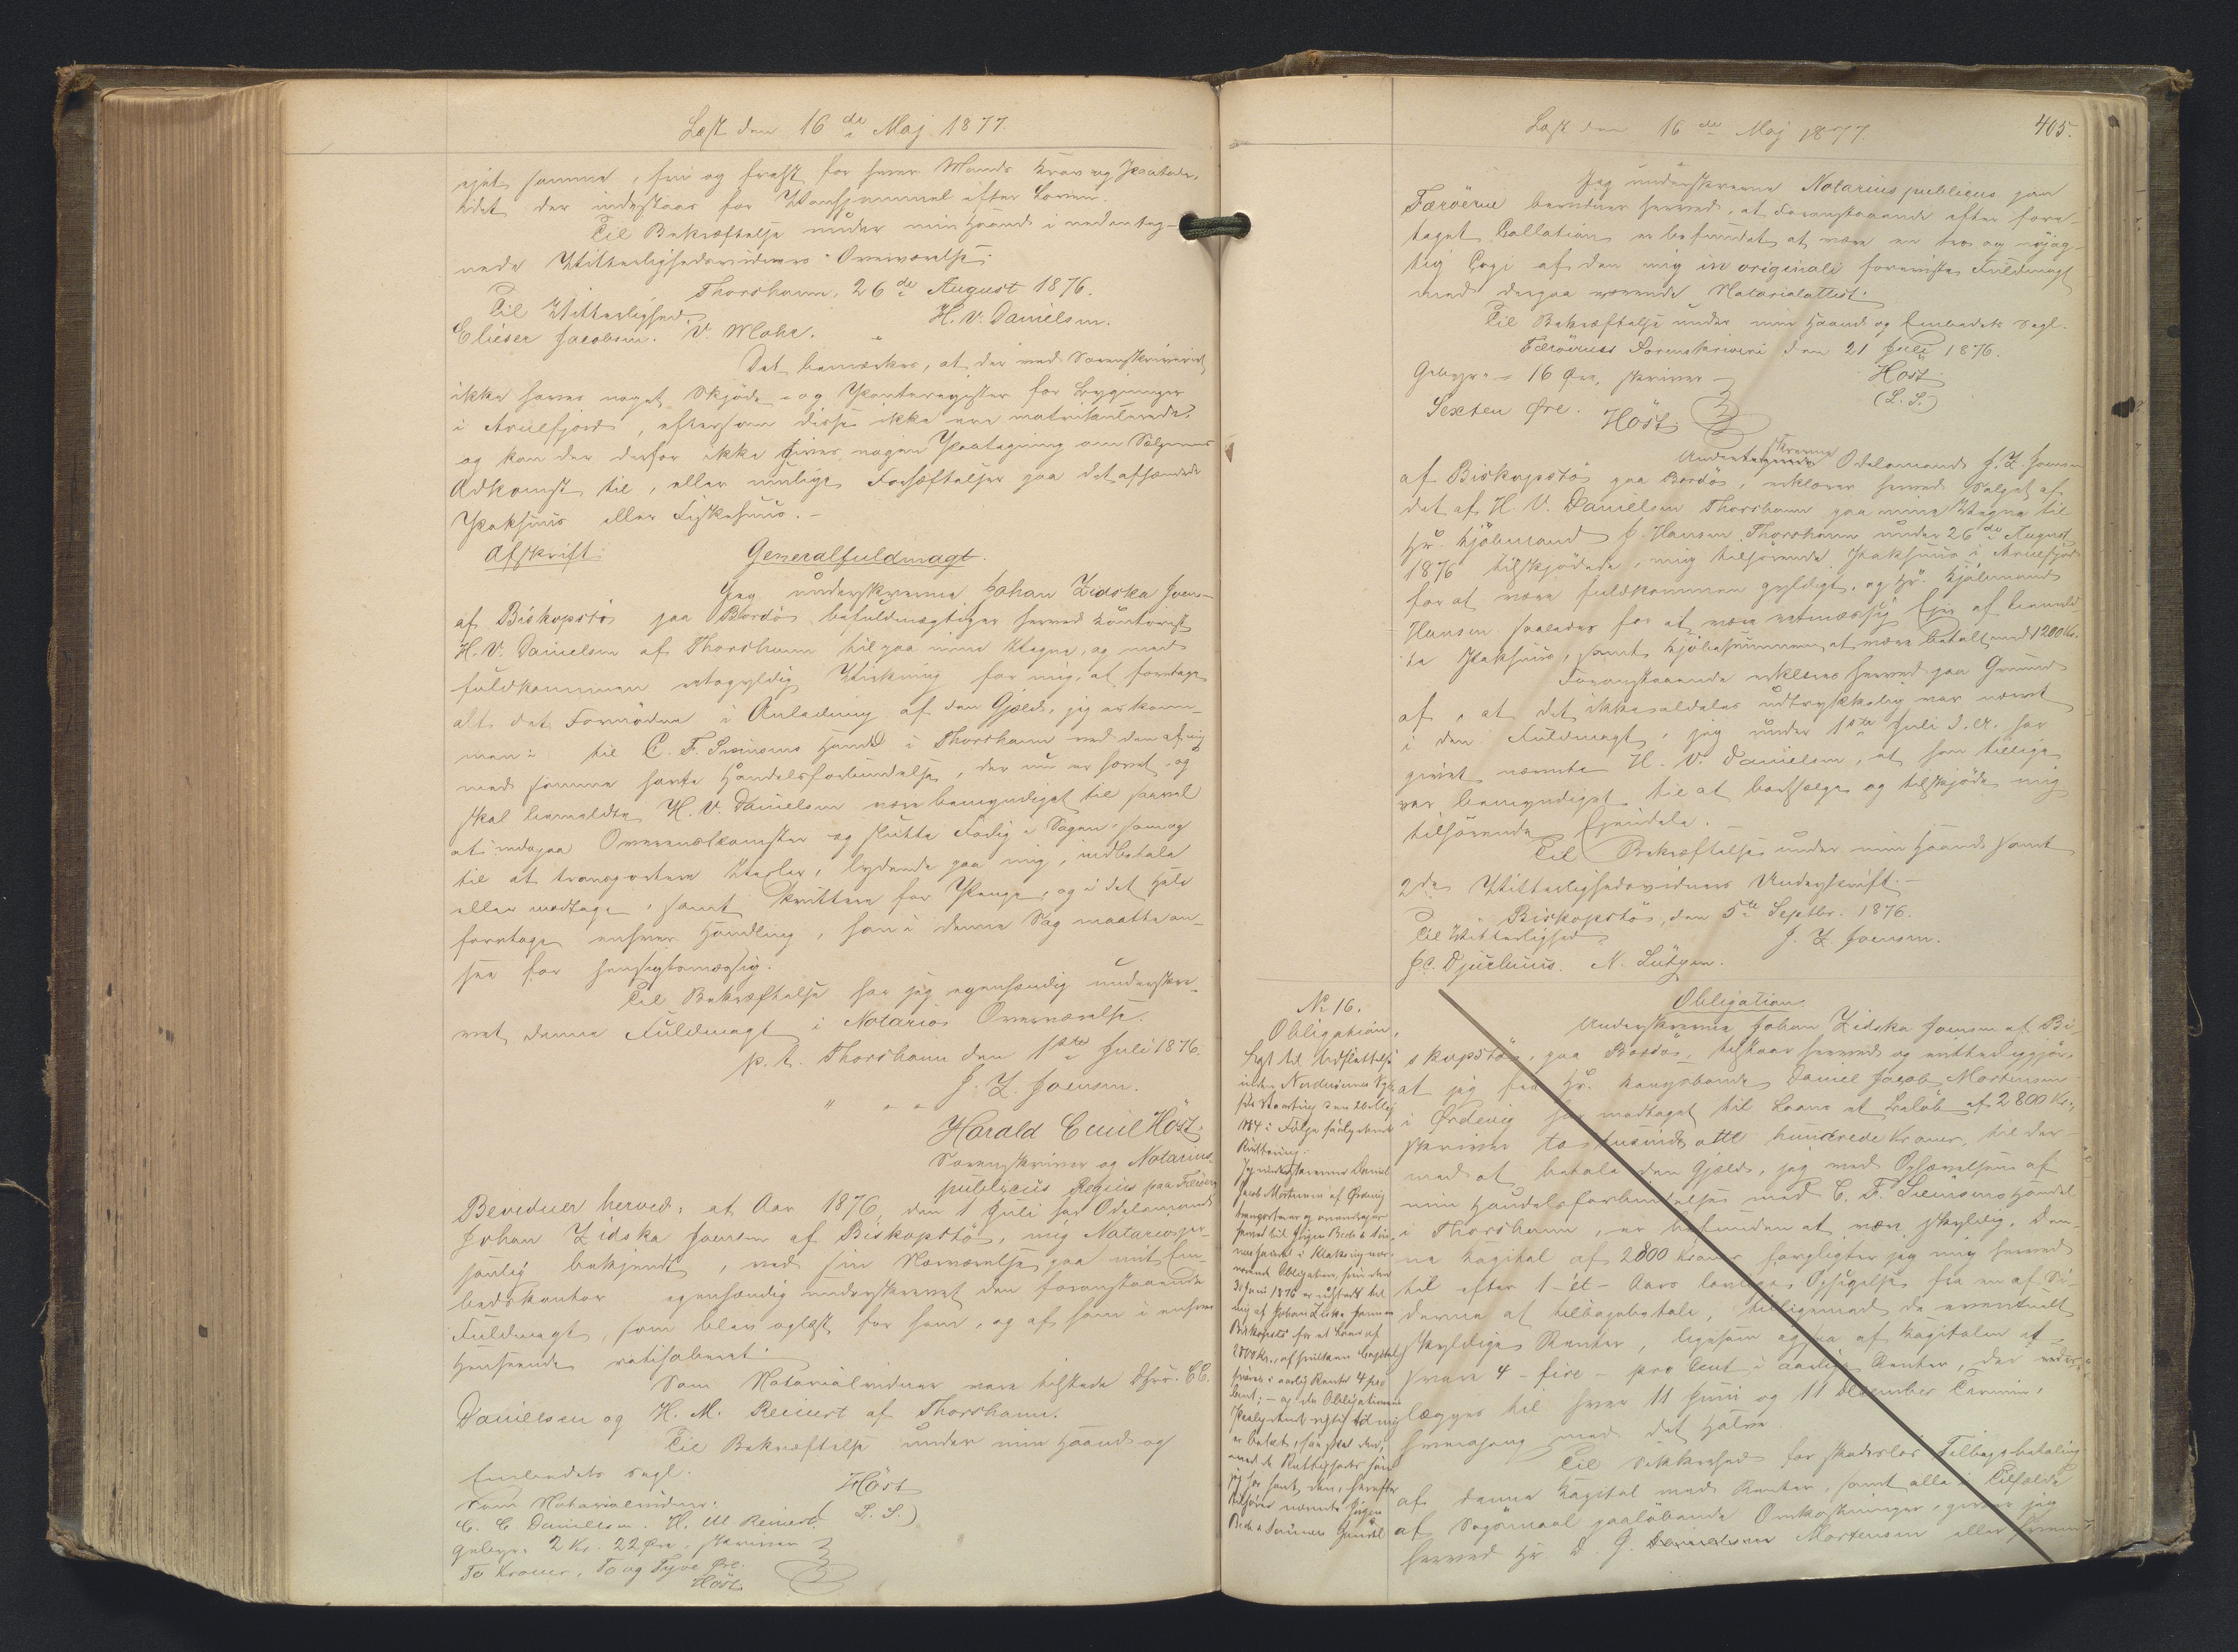 Læst den 16de Maj 1877.
ejet samme, fri og frelst for hver Mands Krav og Paatale,
idet der indestaaes for Vanhjemmel efter Loven.
Til Bekræftelse under min Haand i nedenteg-
nede Vitterlighedsvidners Overværelse.
Thorshavn, 26de August 1876.
Til Vitterlighed
H. V. Danielsen.
Elieser Jacobsen. V. Mohr.
Det bemærkes, at der ved Sorenskriveriet
ikke haves noget Skjøde- og Panteregister for Bygninger
i Arnefjord, eftersom disse ikke ere matrikulerede,
og kan der derfor ikke gives nogen Paategning om Sælgerens
Adkomst til, eller mulige Forhæftelser paa det afhændede
Pakhuus eller Fiskehuus.-
Afskrift.
Generalfuldmagt.
Jeg underskrevne Johan Zidska Joens-
af Biskopstö paa Bordö befuldmægtiger herved Kontorist
H. V. Danielsen af Thorshavn til paa mine Vegne, og med
fuldkommen retsgyldig Virkning for mig, at foretage
alt det Fornødne i Anledning af den Gjæld, jeg er kom-
men i til C. F. Siemsens Handel i Thorshavn ved den af mig
med samme havte Handelsforbindelse, der nu er hævet, og
skal bemeldte H. V. Danielsen være bemyndiget til saavel
at indgaa Overenskomster og slutte Forlig i Sagen som og
til at transportere Vexler, lydende paa mig, indbetale
eller modtage, samt kvittere for Penge, og i det Hele
foretage enhver Handling, han i denne Sag maatte an-
see for hensigtsmæssig.
Til Bekræftelse har jeg egenhændig underskre-
vet denne Fuldmagt i Notarios Overværelse.
p. t. Thorshavn den 1ste Juli 1876.
J. Z. Joensen.
Harald Emil Höst
Sorenskriver og Notarius
publicus Regius paa Færöerne
Bevidner herved: at Aar 1876, den 1 Juli har Odelsmand
Johan Zidska Joensen af Biskopstö, mig Notario per-
sonlig bekjendt, ved sin Nærværelse paa mit Em-
bedskontor egenhændig underskrevet den foranstaaende
Fuldmagt, som blev oplæst for ham, og af ham i enhver
Henseende ratihaberet.
Som Notarialvidner vare tilstede Dhrr. C C.
Danielsen og H. M. Reinert af Thorshavn.
Til Bekræftelse under min Haand og
Embedets Segl.
Höst
Som Notarialvidner:
(L. S.)
C. C. Danielsen. H. M Reinert.
Gebyr: 2 Kr. 22 Øre. skriver
To Kroner, To og Tyve Øre.
Höst
Læst den 16de Maj 1877.
405.
Jeg underskrevne Notarius publicus paa
Færöerne bevidner herved, at Foranstaaende efter fore-
taget Collation er befundet at være en tro og nöjag-
tig Copi af den mig in originali foreviste Fuldmagt
med derpaa værende Notarialattest.
Til Bekræftelse under min Haand og Embedets Segl.
Færöernes Sorenskriveri den 21 Juli 1876.
Gebyr: 16 Øre, skriver
Höst
(L. S.)
Sexten Øre.
Höst
skrevne
Undertegnede Odelsmand J. Z. Joensen
af Biskopstö paa Bordö, erklærer herved Salget af
det af H. V. Danielsen Thorshavn paa mine Vegne til
Hr. Kjöbmand J. Hansen Thorshavn under 26de August
1876 tilskjödede, mig tilhørende Pakhuus i Arnefjord
for at være fuldkommen gyldigt, og Hr. Kjöbmand
Hansen saaledes for at være retmæssig Ejer af bemeld-
te Pakhuus, samt Kjöbesummen at være betalt med 1200 Kr.
Foranstaaende erklæres herved paa Grund
af, at det ikke saaledes udtrykkelig var nævnt
i den Fuldmagt, jeg under 1ste Juli d. A. har
givet nævnte H. V. Danielsen, at han tillige
var bemyndiget til at bortsælge og tilskjöde mig
tilhørende Ejendele.
Til Bekræftelse under min Haand samt
2de Vitterlighedsvidners Underskrift.-
Biskopstö, den 5te Septbr. 1876.
Til Vitterlighed
J. Z. Joensen.
J. C. Djurhuus. N. Lützen.
No 16.
Obligation,
lyst til Udslettelse
inden Nordreöernes
Kvittering.
Jeg underskrevne Daniel
Jacob Mortensen af Ørdevig
transporterer og overdrager
værende Obligation, som den
3. Juni 1876 er udstedt til
mig af Johan Zidska Joensen
Biskopstö for et Laan af
2800 Kr., af hvilken Capital
svares i aarlig Rente 4 pro
Cent; - og da Obligationens
Paalydende rigtig til mig
er betalt, saa skal den,
med de Rettigheder som
jeg har havt, den, herefter
tilhøre nævnte
Obligation.
Underskrevne Johan Zidska Joensen af Bi-
skopstö, paa Bordö, tilstaar herved og vitterliggjör,
at jeg fra Hr. Kongsbonde Daniel Jacob Mortensen
i Ørdevig har modtaget til Laans et Beløb af 2800 Kr.,
skriver to tusinde otte hundrede Kroner, til der-
med at betale den Gjæld, jeg ved Ophævelsen af
min Handelsforbindelse med C. F. Siemsens Handel
i Thorshavn, er befunden at være skyldig. Den-
ne Kapital af 2800 Kroner forpligter jeg mig herved
til efter 1-ét- Aars lovlig Opsigelse fra en af Si-
derne at tilbagebetale, tilligemed de eventuelt
skyldige Renter, ligesom og paa af Kapitalen at
svare 4 - fire - pro Cent i aarlige Renter, der
lægges til hver 11 Juni og 11 December Termin,
hver Gang med det Halve.
Til Sikkerhed for skadeslös Tilbagebetaling
af denne Kapital med Renter, samt alle i Tilfælde
af Sögsmaal paaløbende Omkostninger, giver jeg
herved Hr D. J. Danielsen Mortensen eller